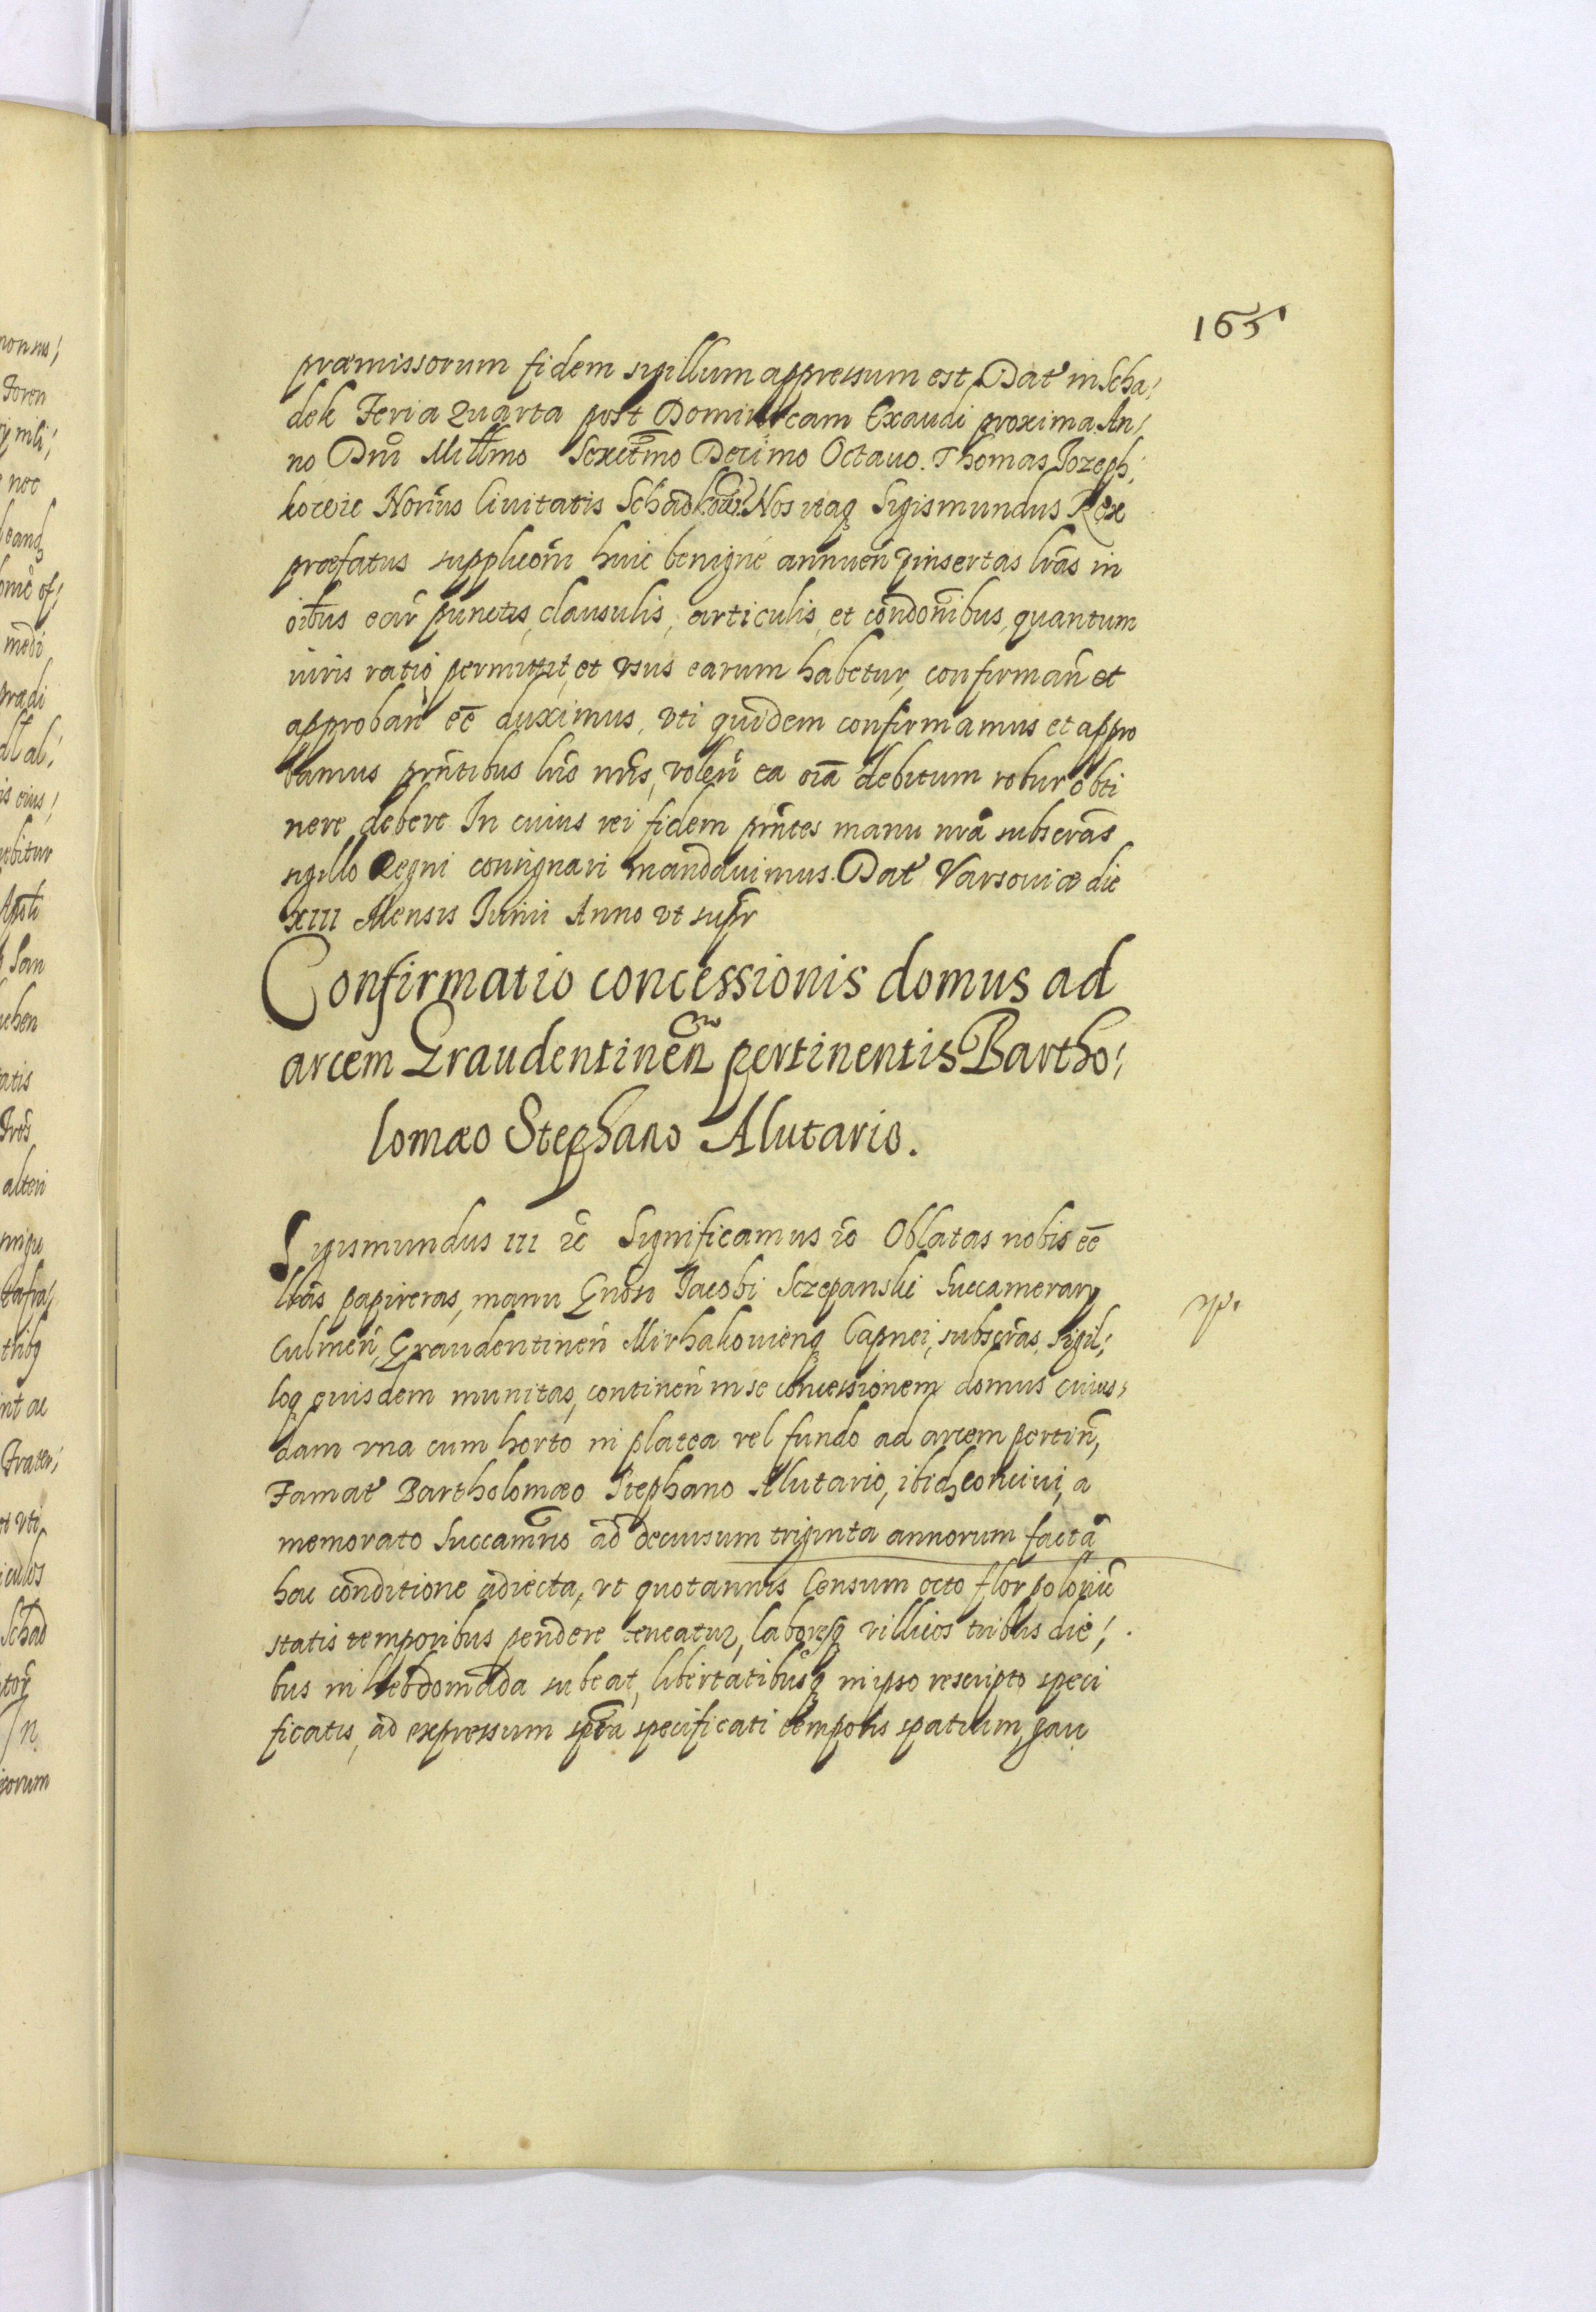 165
præmissorum fidem sigillum appressum est Dat in Scha/
dek Feria Quarta post Dominicam Exaudi proxima. An/
no Dñi Millmo Sexctmo Decimo Octauo. Thomas Jozeph/
kowic Norius Ciuitatis Schadkow. Nos itaq Sigismundus Rex
præfatus supplicõni huic benigné annueñ pinsertas lrãs in
oibus eãr punctis, clausulis, articulis, et condõnibus, quantum
iuris ratio permittit, et vsus earum habetur, confirmañ et
approbañ eẽ duximus, vti quidem confirmamus et appro
bamus pñtibus lris nris, voleñ ea oiã debitum robur obti
nere debere. In cuius rei fidem pñtes manu nrã subscrãs
sigillo Regni consignari mandauimus. Dat Varsouiæ die
XIII Mensis Junii Anno vt supr
Confirmatio concessionis domus ad
arcem Graudentineñ pertinentis Bartho/
lomæo Stephano Alutario.
Sigismundus III &c Significamus &c Oblatas nobis eẽ
lrãs papireras, manu Gnosi Jacobi Sczepanski Succamerary
Culmeñ, Graudentineñ Mirhakouienq Capnei, subscrãs, sigil/
loq euisdem munitas, contineñ in se concessionem domus cuius/
dam vna cum horto in platea vel fundo ad arcem pertiñ,
Famat Bartholomæo Stephano Alutario, ibid conciui, a
memorato Succamrio ad decursum triginta annorum factã
hac conditione adiecta, vt quotannis Censum octo flor polonic
statis temporibus pendere teneatur, laboresq villicos tribus die/
bus in hebdomada subeat, libertatibusq in ipso rescripto speci
ficatis, ad expressum spra specificati temporis spatium, gau